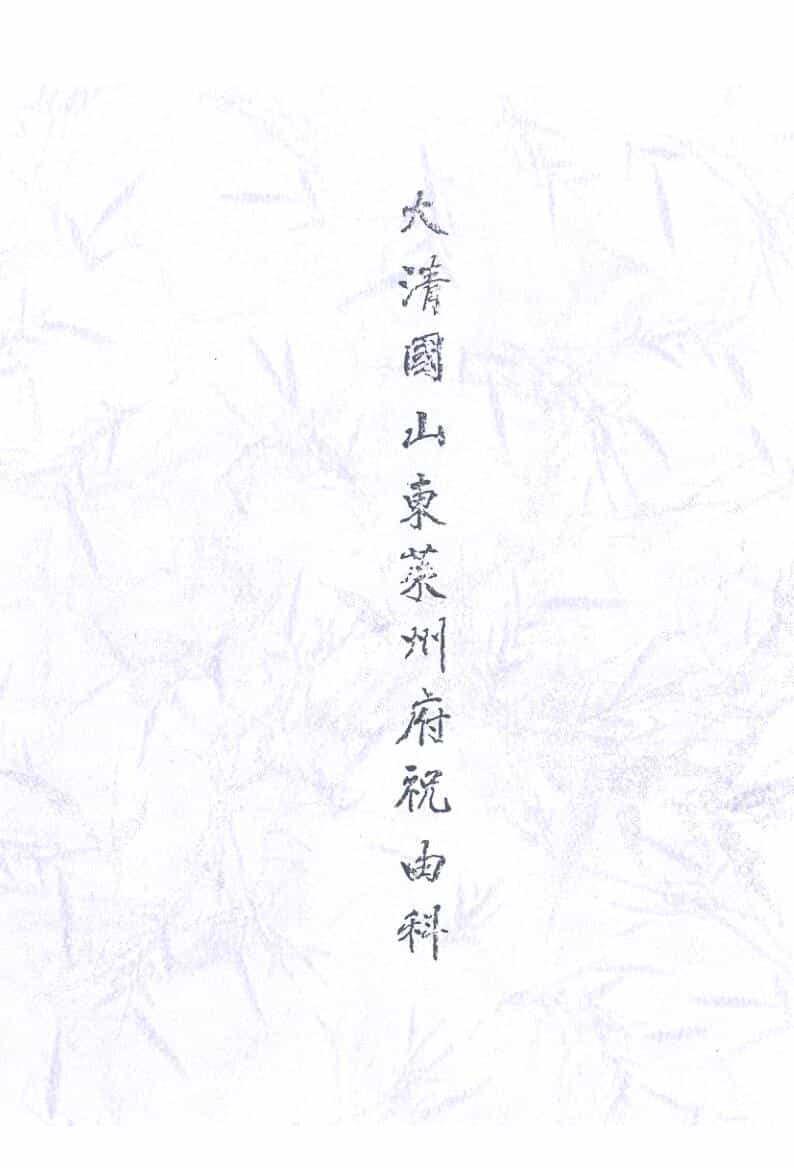 大清國山東萊州府祝由科